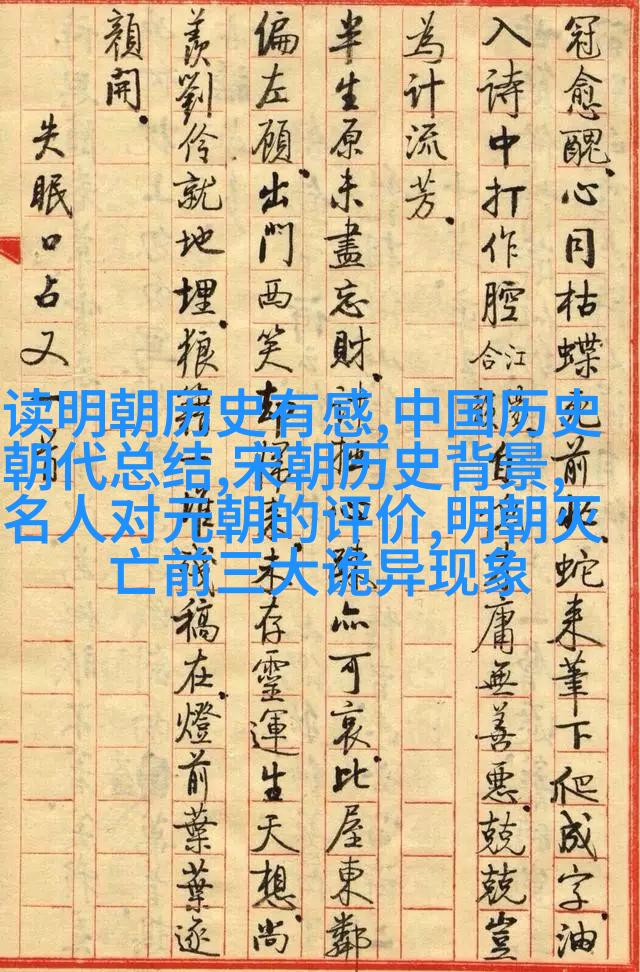 冠愈醜。心同枯蝶前蛇来筆下爬成字。油
入詩中打作腔
合江
自庸無善惡。兢兢豈
為計流芳。
半生原未盡忘財。亦可哀。比屋東鄰
偏左顧。出門西笑却来。未存靈運生天想。尚
羨劉伶就地埋。狼籍一堆稿在。燈前葉葉逐
顏開。
失眠口占又一首
读明朝历史有感,中国历史
朝代总结,宋朝历史背景,
名人对元朝的评价,明朝灭
亡前三大诡异现象